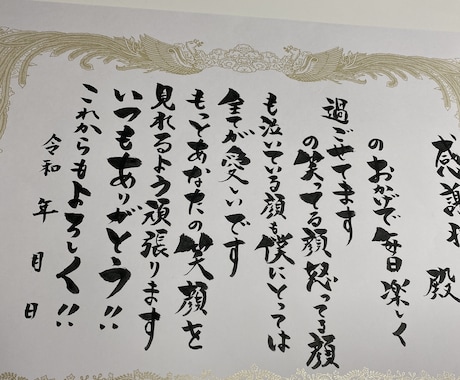 感謝状
殿
のおかげで毎日楽しく
過ごせてます
の笑ってる顔怒ってる顔
も泣いている顔も僕にとっては
全てが愛しいです
もっとあなたの笑顔を
見れるよう頑張ります
いつもありがとう!!
これからもよろしく!!
令和 年 月 日